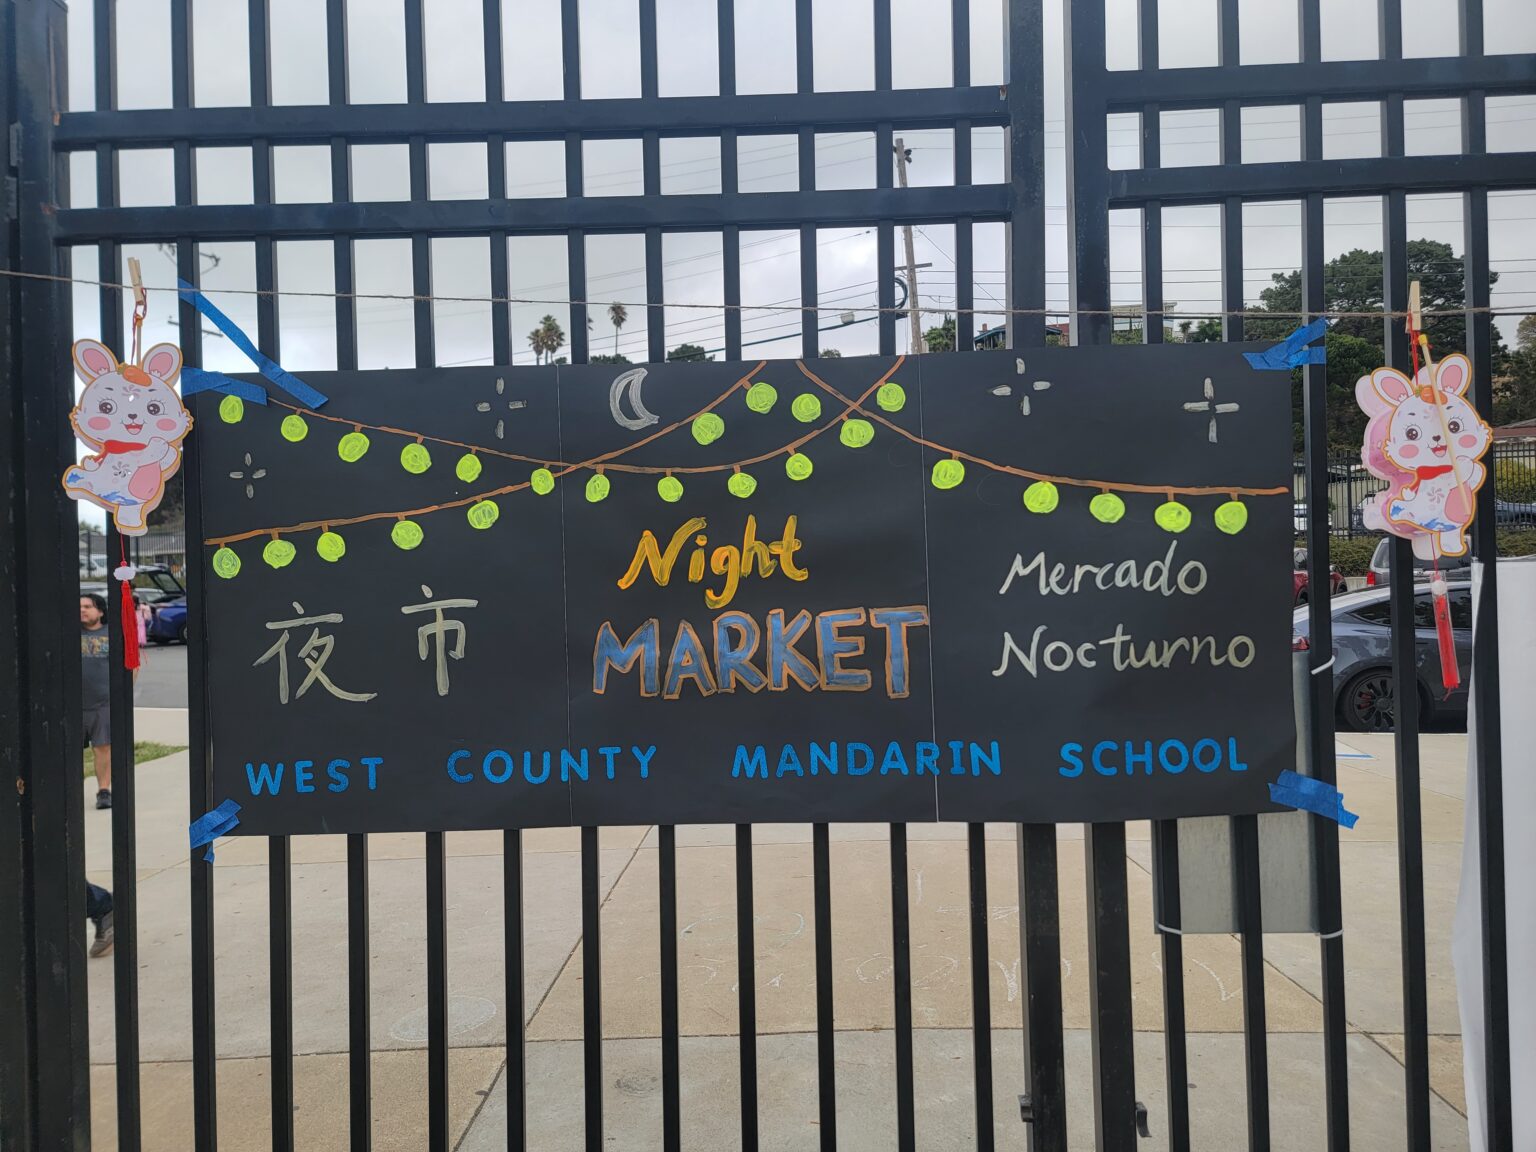 夜市
Night
MARKET
Mercado
Nocturno
WEST COUNTY MANDARIN SCHOOL